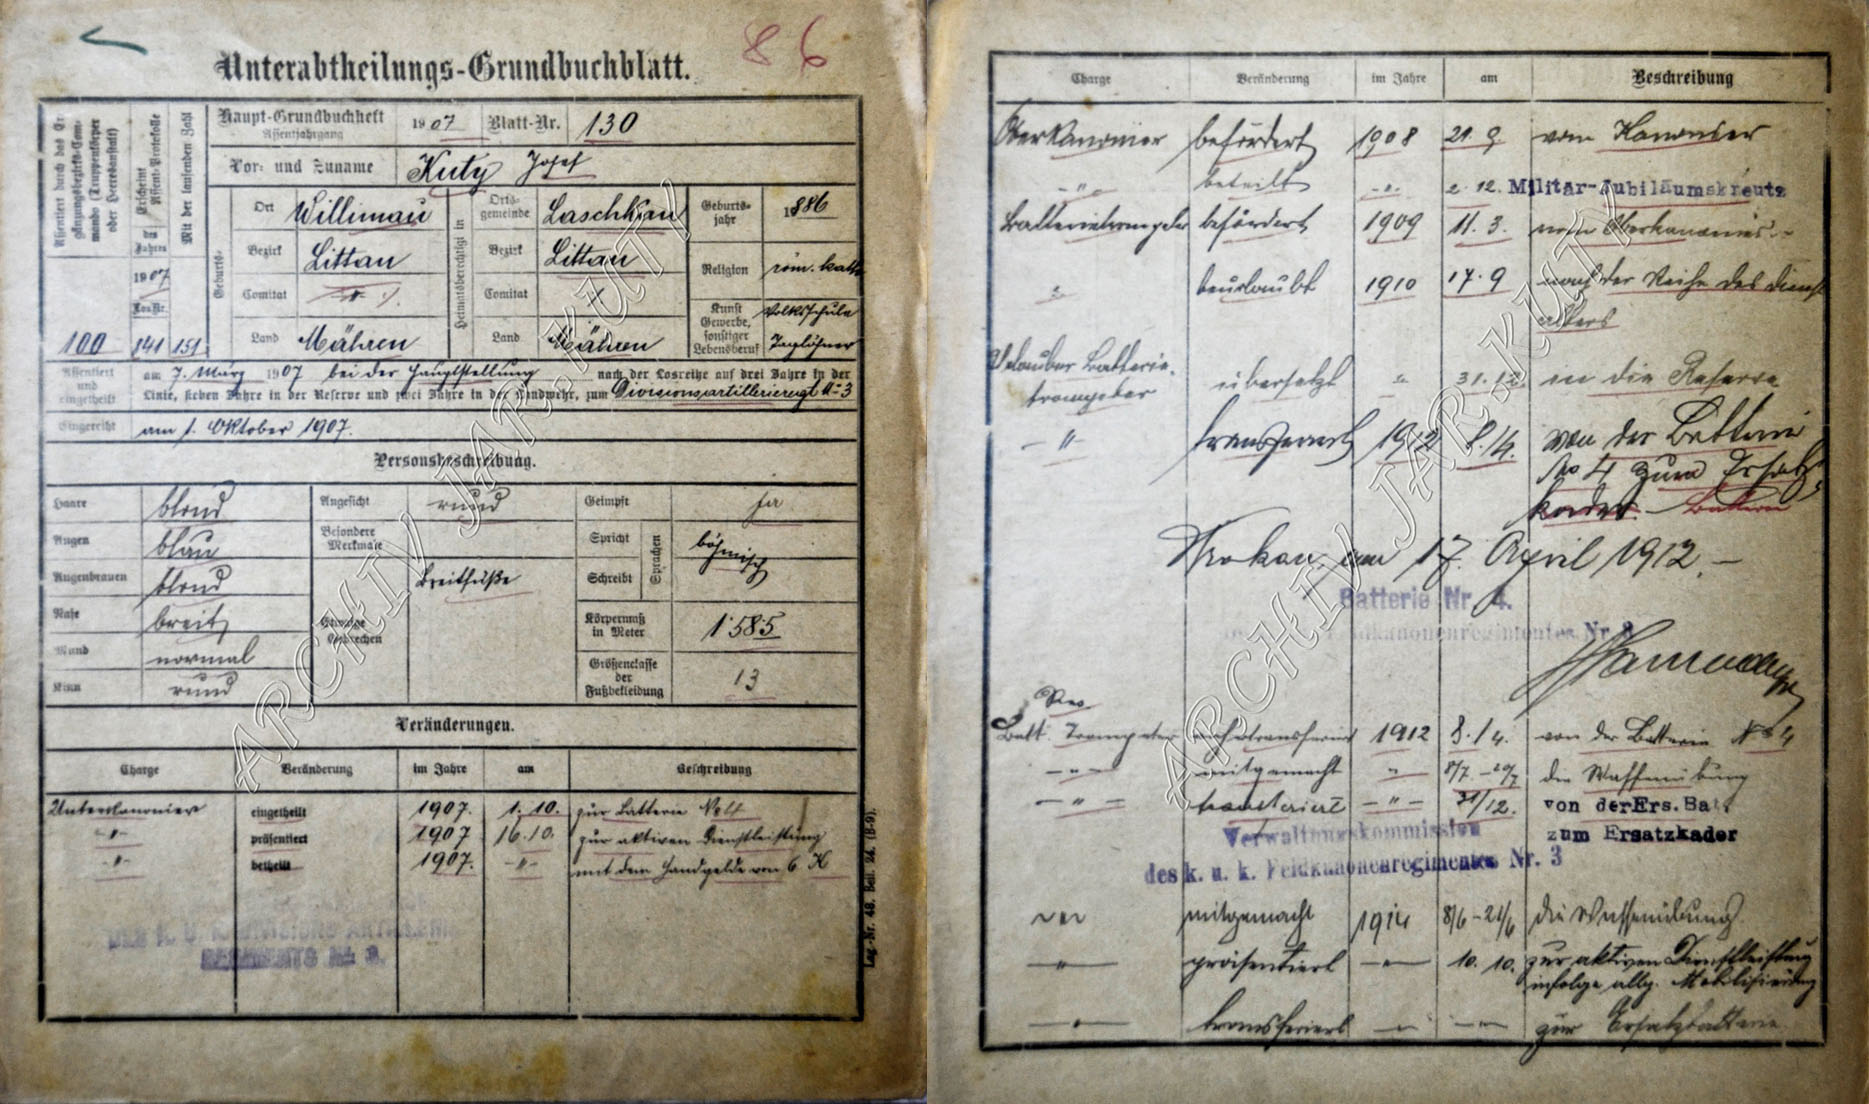 86
Unterabtheilungs-Grundbuchblatt.
Assentiert durch das Ergänzungsbezirks-Commando (Truppenkörper oder Heeresanstalt)
Erscheint Assent-Protokolle
des Jahres
1907
Los-Nr.
Mit der laufenden Zahl
100 141 151
Haupt-Grundbuchheft
Assentjahrgang
1907 Blatt-Nr. 130
Vor- und Zuname Kuty Josef
Geburts-
Ort Willimau
Bezirk Littau
Comitat
Land Mähren
Heimatsberechtigt in
Ortsgemeinde Laschkau
Bezirk Littau
Comitat
Land Mähren
Geburtsjahr 1886
Religion röm. kath.
Kunst Gewerbe, sonstiger Lebensberuf
Volksschule
Taglöhner
Assentiert und eingetheilt
am 7. März 1907 bei der Hauptstellung nach der Losreihe auf drei Jahre in der
Linie, sieben Jahre in der Reserve und zwei Jahre in der Landwehr, zum Divisionsartillerieregt No 3
Eingereiht am 1. Oktober 1907.
Personsbeschreibung.
Haare blond
Augen blau
Augenbrauen blond
Nase breit
Mund normal
Kinn rund
Angesicht rund
Besondere Merkmale
Breitfüße
Gebrechen
Geimpft ja
Spricht
Schreibt
Sprachen
böhmisch
Körpermaß in Meter 1·585
Größenclasse der Fußbekleidung 13
Veränderungen.
Charge Veränderung im Jahre am Beschreibung
Unterkanonier eingetheilt 1907. 1. 10. zur Batterie No 4
-"- präsentiert 1907 16.10. zur aktiven Dienstleistung
-"- betheilt 1907. -"- mit dem Handgelde von 6 K
DES K. U. K. DIVISIONS ARTILLERIE
REGIMENTS Nr. 3.
Lag.-Nr. 48. Beil. 24. (B-9).
Charge Veränderung im Jahre am Beschreibung
Oberkanonier befördert 1908 21. 9. vom Kanonier
-"- beteilt -"- 2. 12. Militär-Jubiläumskreutz
Batterietrompeter befördert 1909 11. 3. vom Oberkanonier
-"- beurlaubt 1910 17. 9 nach der Reihe des Dienst
alters
Urlauber Batterie-
trompeter übersetzt -"- 31. 12. in die Reserve
-"- transferiert 1912 8./4. von der Batterie
No 4 zum Ersatz-
kader. - Batterie
Krakau, am 17. April 1912.-
Batterie Nr. 4.
Feldkanonenregimentes Nr. 3
Res
Batt. Trompeter transferiert 1912 8./4. von der Batterie No 4
-"- mitgemacht " 8/7. - 20/7 die Waffenübung
-"- transferiert -"- 31/12. von der Ers. Batt
zum Ersatzkader
Verwaltungskommission
des k. u. k. Feldkanonenregimentes Nr. 3
-"- mitgemacht 1914 8/6 - 21/6 die Waffenübung
-"- präsentiert -"- 10. 10. zur aktiven Dienstleistung
infolge allg. Mobilisierung
-"- transferiert -"- -"- zur Ersatzbatterie
ARCHIV JAR. KUTÝ
ARCHIV JAR. KUTÝ